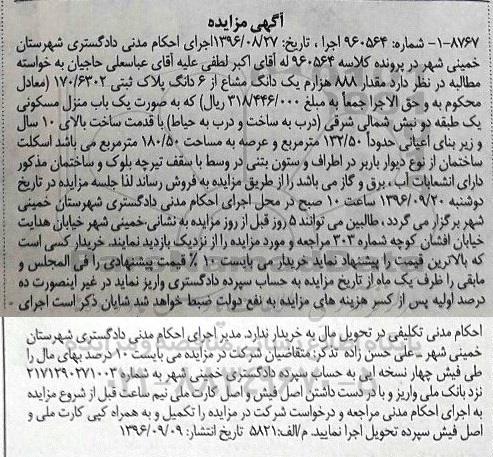 آگهی مزایده
۸۷۶۷-۱- شماره: ۹۶۰۵۶۴ اجرا ، تاریخ: ۱۳۹۶/۰۸/۲۷ اجرای احکام مدنی دادگستری شهرستان
خمینی شهر در پرونده کلاسه ۹۶۰۵۶۴ له آقای اکبر لطفی علیه آقای عباسعلی حاجیان به خواسته
مطالبه در نظر دارد مقدار ۸۸۸ هزارم یک دانگ مشاع از ۶ دانگ پلاک ثبتی ۱۷۰/۶۳۰۲ (معادل
محکوم به و حق الاجرا جمعاً به مبلغ ۳۱۸/۴۴۶/۰۰۰ ریال) که به صورت یک باب منزل مسکونی
یک طبقه دو نبش شمالی شرقی (درب به ساخت و درب به حیاط) با قدمت ساخت بالای ۱۰ سال
و زیر بنای اعیانی حدوداً ۱۳۲/۵۰ مترمربع و عرصه به مساحت ۱۸۰/۵۰ مترمربع می باشد اسکلت
ساختمان از نوع دیوار باربر در اطراف و ستون بتنی در وسط با سقف تیرچه بلوک و ساختمان مذکور
دارای انشعابات آب ، برق و گاز می باشد را از طریق مزایده به فروش رساند لذا جلسه مزایده در تاریخ
دوشنبه ۱۳۹۶/۰۹/۲۰ ساعت ۱۰ صبح در محل اجرای احکام مدنی دادگستری شهرستان خمینی
شهر برگزار می گردد ، طالبین می توانند ۵ روز قبل از روز مزایده به نشانی خمینی شهر خیابان هدایت
خیابان افشان کوچه شماره ۳۰۳ مراجعه و مورد مزایده را از نزدیک بازدید نمایند. خریدار کسی است
که بالاترین قیمت را پیشنهاد نماید خریدار می بایست ۱۰ ٪ قیمت پیشنهادی را فی المجلس و
مابقی را ظرف یک ماه از تاریخ مزایده به حساب سپرده دادگستری واریز نماید در غیر اینصورت ده
درصد اولیه پس از کسر هزینه های مزایده به نفع دولت ضبط خواهد شد شایان ذکر است اجرای
احکام مدنی تکلیفی در تحویل مال به خریدار ندارد. مدیر اجرای احکام مدنی دادگستری شهرستان
خمینی شهر ـ علی حسن زاده تذکر: متقاضیان شرکت در مزایده می بایست ۱۰ درصد بهای مال را
طی فیش چهار نسخه ایی به حساب سپرده دادگستری خمینی شهر به شماره ۲۱۷۱۲۹۰۲۷۱۰۰۳
نزد بانک ملی واریز و با در دست داشتن اصل فیش و اصل کارت ملی نیم ساعت قبل از شروع مزایده
به اجرای احکام مدنی مراجعه و درخواست شرکت در مزایده را تکمیل و به همراه کپی کارت ملی و
اصل فیش سپرده تحویل اجرا نمایید. م/الف: ۵۸۲۱ تاریخ انتشار: ۱۳۹۶/۰۹/۰۹